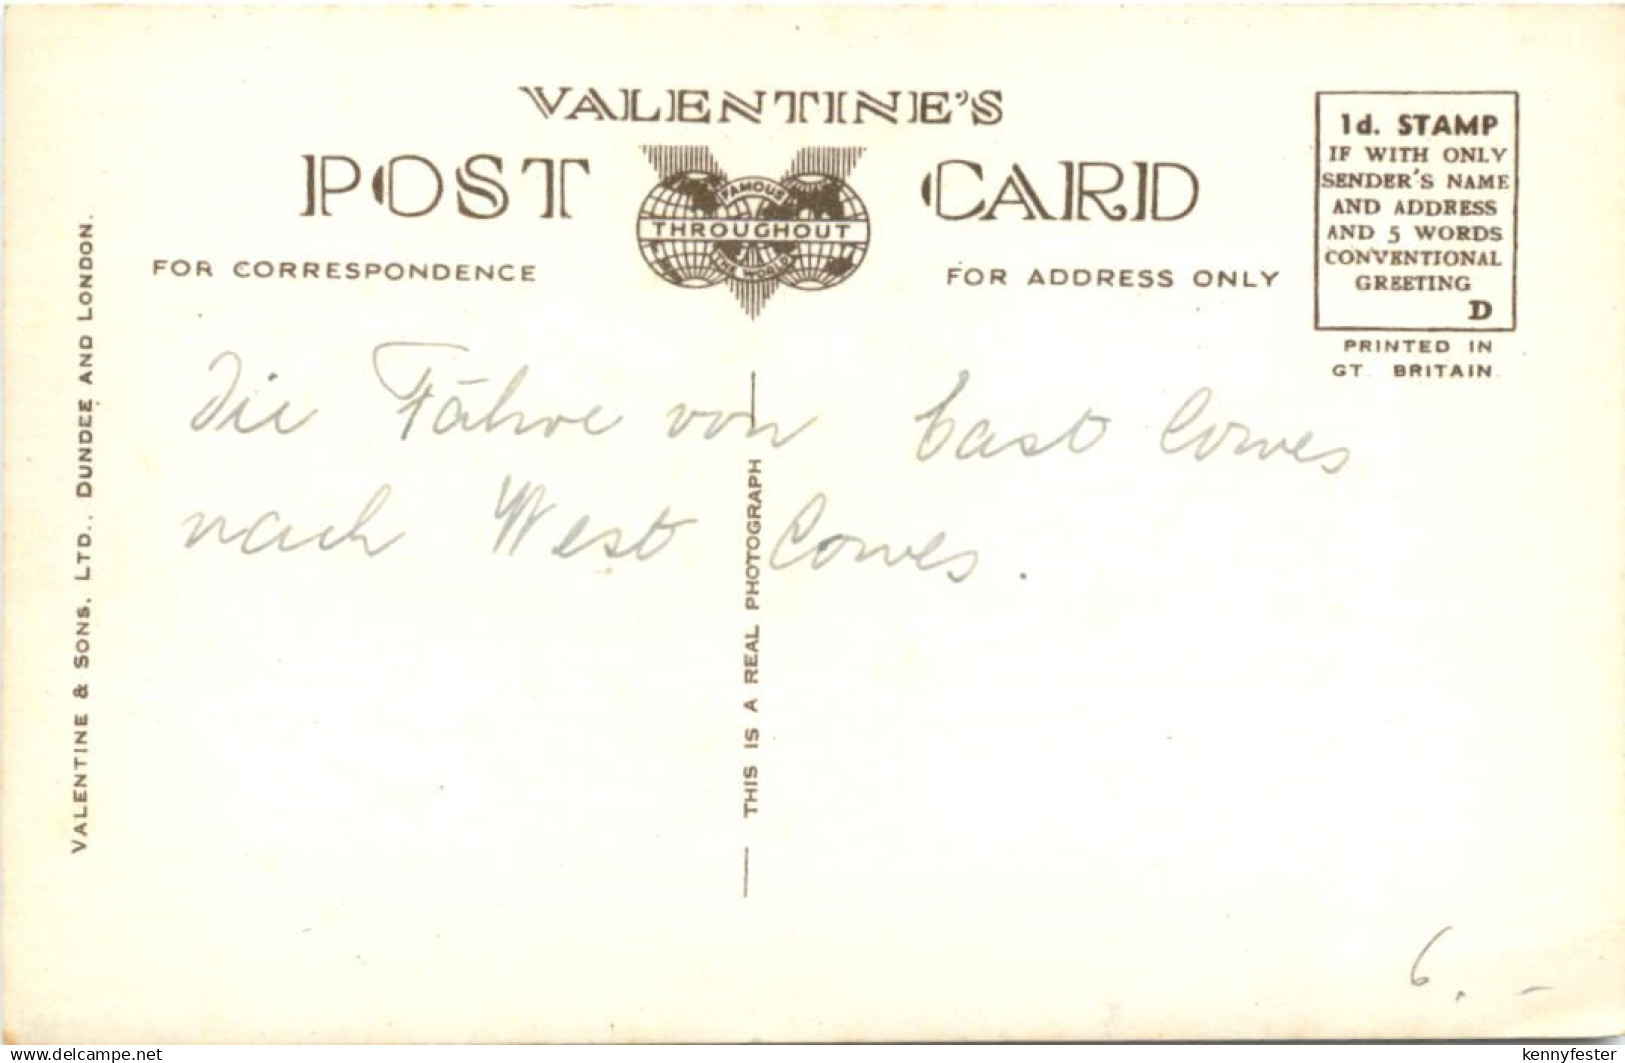 VALENTINE'S
POST CARD
FAMOUS
THROUGHOUT
THE WORLD
FOR CORRESPONDENCE
FOR ADDRESS ONLY
1d. STAMP
IF WITH ONLY
SENDER'S NAME
AND ADDRESS
AND 5 WORDS
CONVENTIONAL
GREETING
D
PRINTED IN
GT. BRITAIN.
VALENTINE & SONS. LTD., DUNDEE AND LONDON.
Die Fähre von East Cowes
nach West Cowes.
THIS IS A REAL PHOTOGRAPH
6.-
www.delcampe.net
kennyfester